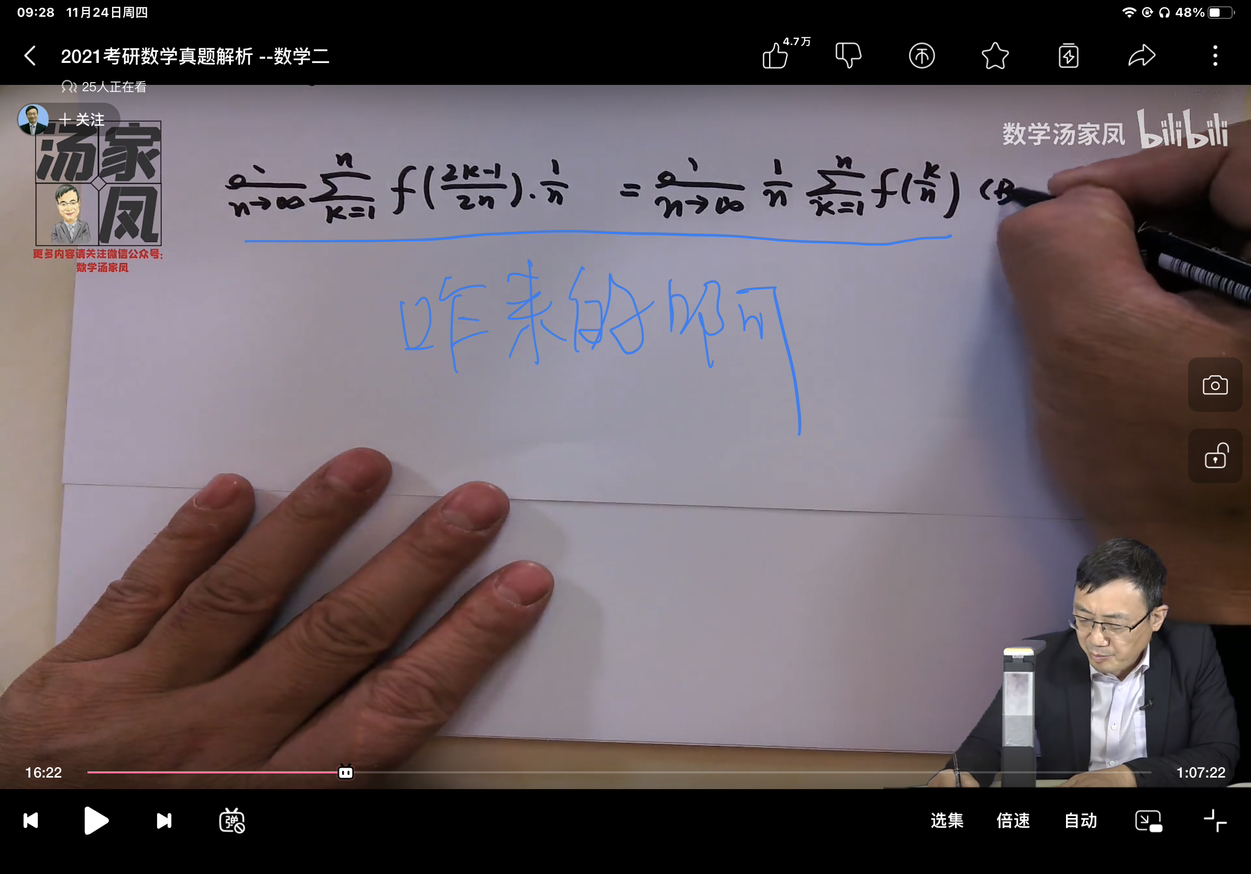 09:28 11月24日周四
48%
2021考研数学真题解析 --数学二
4.7万
25人正在看
+ 关注
汤家凤
更多内容请关注微信公众号:
数学汤家凤
数学汤家凤 bilibili
n→∞ ∑ n k=1 f(2k-1/2n)·1/n = n→∞ 1/n ∑ n k=1 f(k/n) (B
咋来的啊
16:22
1:07:22
弹
选集 倍速 自动